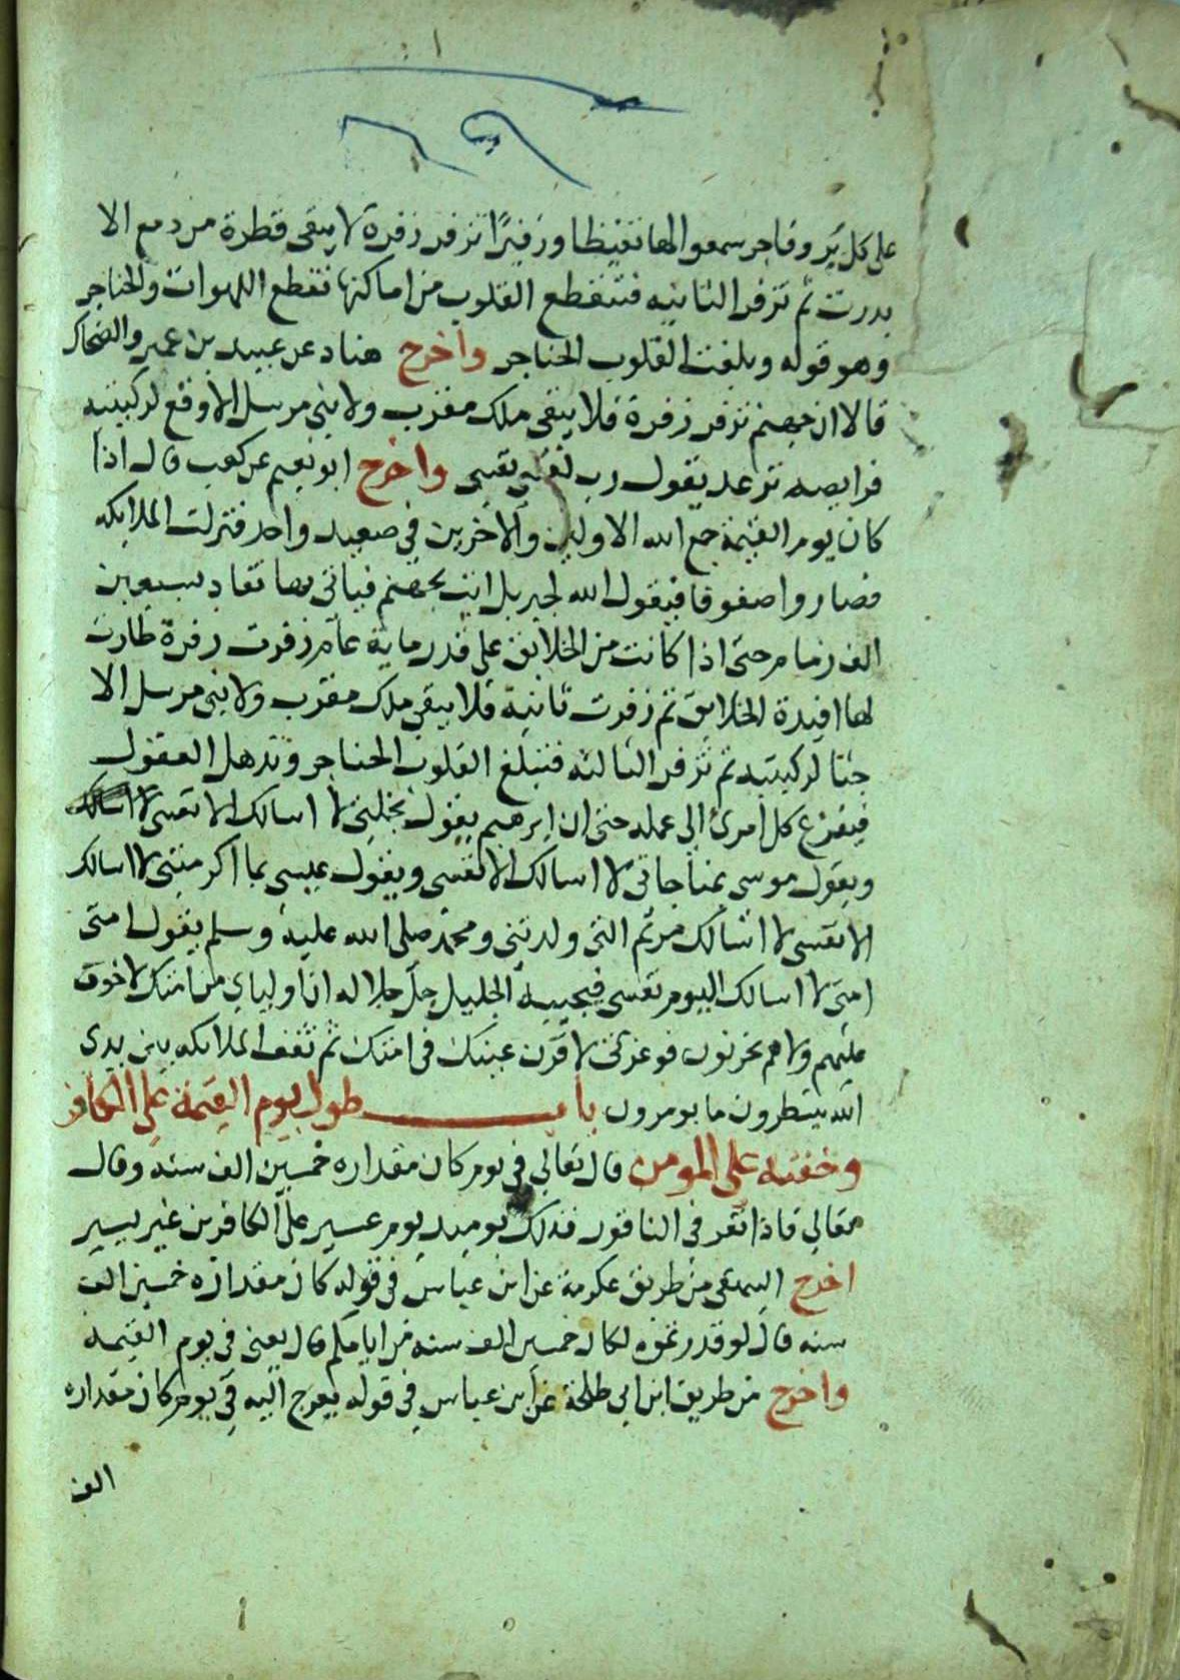 على كل بر وفاجر سمعوا لها تغيظا وزفيرًا تزفر زفرة لا يبقى قطرة من دمع الا
بدرت ثم تزفر الثانيه فتنقطع القلوب من اماكنها تقطع اللهوات والحناجر
وهو قوله وبلغت القلوب الحناجر واخرج هناد عن عبيد بن عمير والضحاك
قالا ان جهنم تزفر زفرة فلا يبقى ملك مقرب ولا نبى مرسل الا وقع لركبتيه
فرايصه ترعد يقول رب نفسى نفسى واخرج ابو نعيم عن كعب قال اذا
كان يوم القيمة جمع الله الاولين والاخرين في صعيد واحد فنزلت الملايكه
فصاروا صفوفا فيقول الله لجبريل ايت بجهنم فياتى بها تقاد بسبعين
الف زمام حتى اذا كانت من الخلايق على قدر ماية عام زفرت زفرة طارت
لها افيدة الخلايق ثم زفرت ثانية فلا يبقى ملك مقرب ولا نبى مرسل الا
جثا لركبتيه ثم تزفر الثالثه فتبلغ القلوب الحناجر وتذهل العقول
فيفزع كل امرئ الى عمله حتى ان ابرهيم يقول بخلتى لا اسالك الا نفسى لا اسالك
ويقول موسى بمناجاتى لا اسالك الا نفسى ويقول عيسى بما اكرمتنى لا اسالك
الا نفسى لا اسالك مريم التى ولدتنى ومحمد صلى الله عليه وسلم يقول امتى
امتى لا اسالك اليوم نفسى فيجيبه الجليل جل جلاله ان اوليائ من امتك لا خوف
عليهم ولا هم يحزنون فوعزتى لا قرن عينك فى امتك ثم تقف الملايكه بين يدى
الله ينتظرون ما يومرون باب طول يوم القيمة على الكافر
وخفته على المومن قال تعالى فى يوم كان مقداره خمسين الف سنه وقال
تعالى فاذا نقر فى الناقور فذلك يوميد يوم عسير على الكافرين غير يسير
اخرج البيهقى من طريق عكرمة عن ابن عباس فى قوله كان مقداره خمسين الف
سنه قال لو قدرتموه لكان خمسين الف سنه من ايامكم قال يعنى فى يوم القيمة
واخرج من طريق ابن ابى طلحة عن ابن عباس فى قوله يعرج اليه فى يوم كان مقداره
الف